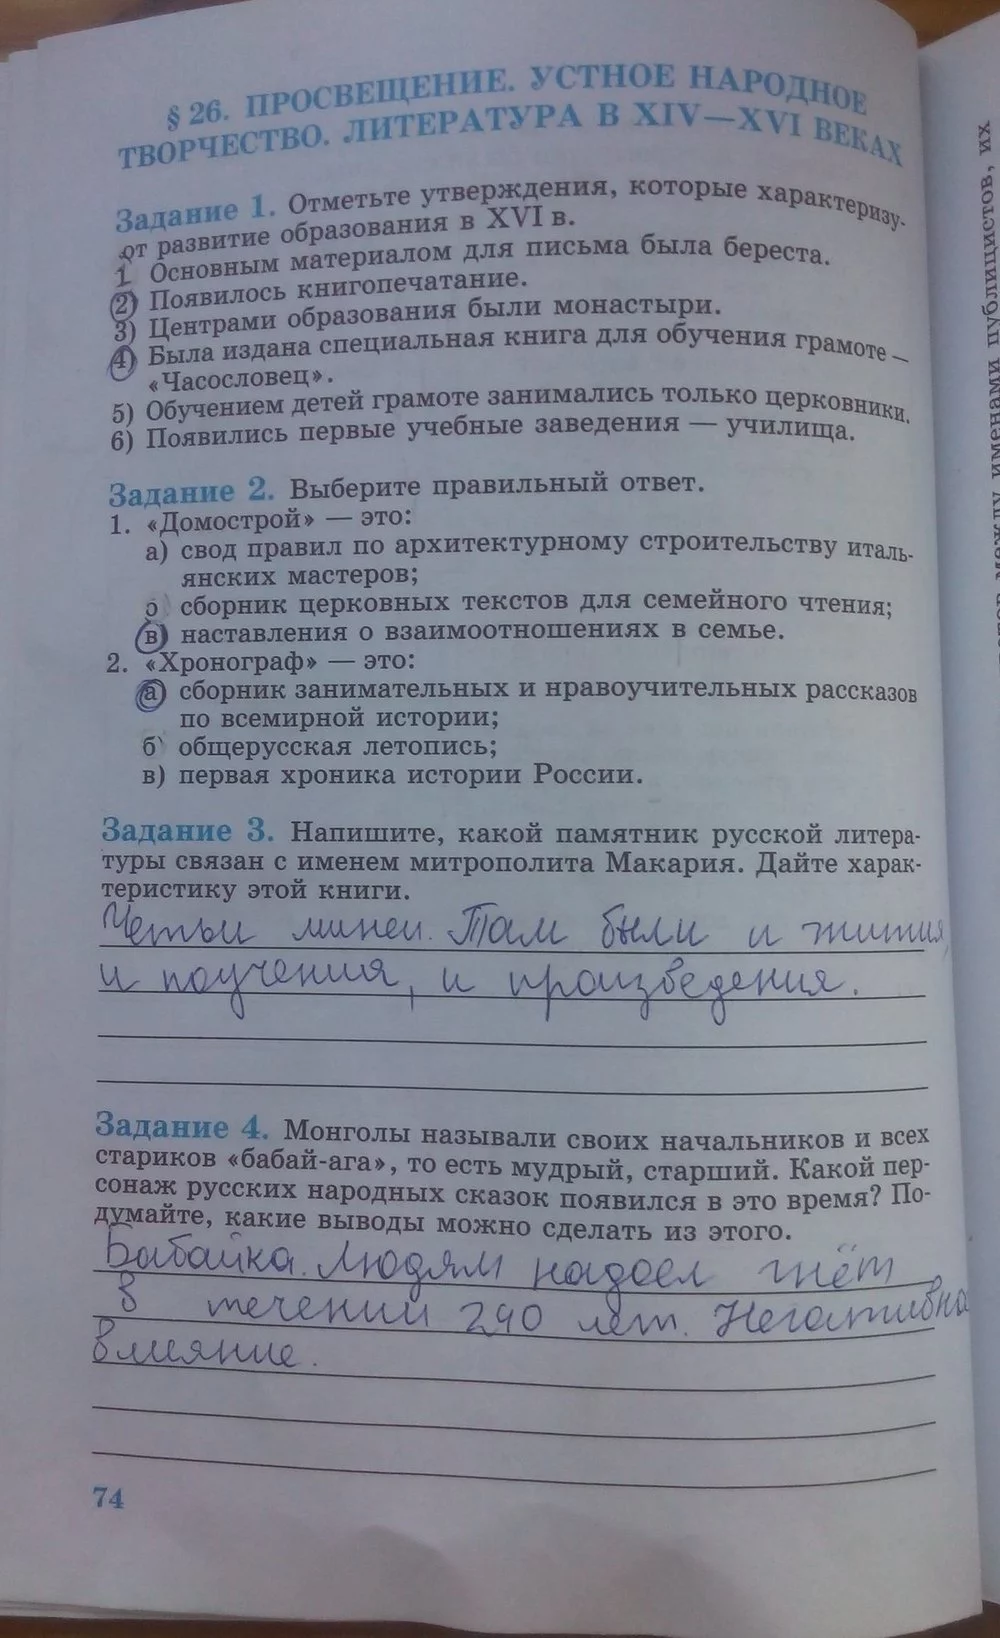 § 26. ПРОСВЕЩЕНИЕ. УСТНОЕ НАРОДНОЕ
ТВОРЧЕСТВО. ЛИТЕРАТУРА В XIV—XVI ВЕКАХ
Задание 1. Отметьте утверждения, которые характеризу-
ют развитие образования в XVI в.
1 Основным материалом для письма была береста.
2) Появилось книгопечатание.
3) Центрами образования были монастыри.
4) Была издана специальная книга для обучения грамоте —
«Часословец».
5) Обучением детей грамоте занимались только церковники.
6) Появились первые учебные заведения — училища.
Задание 2. Выберите правильный ответ.
1. «Домострой» — это:
а) свод правил по архитектурному строительству италь-
янских мастеров;
сборник церковных текстов для семейного чтения;
в) наставления о взаимоотношениях в семье.
2. «Хронограф» — это:
а) сборник занимательных и нравоучительных рассказов
по всемирной истории;
б) общерусская летопись;
в) первая хроника истории России.
Задание 3. Напишите, какой памятник русской литера-
туры связан с именем митрополита Макария. Дайте харак-
теристику этой книги.
Четьи минеи. Там были и жития,
и поучения, и произведения.
Задание 4. Монголы называли своих начальников и всех
стариков «бабай-ага», то есть мудрый, старший. Какой пер-
сонаж русских народных сказок появился в это время? По-
думайте, какие выводы можно сделать из этого.
Бабайка. Людям надоел гнёт
в течении 240 лет. Негативное
влияние.
74
между именами публицистов, их